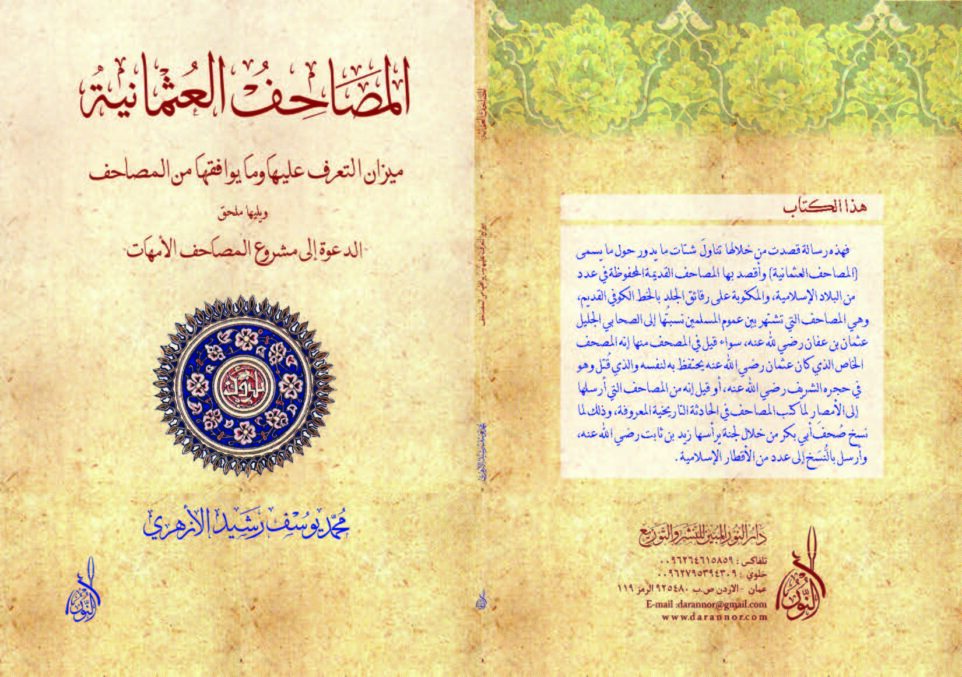 المصاحف العثمانية
ميزان التعرف عليها وما يوافقها من المصاحف
ويليها ملحق
الدعوة إلى مشروع المصاحف الأمهات
محمد يوسف رشيد الأزهري
النور
المصاحف العثمانية
هذا الكتاب
فهذه رسالة قصدت من خلالها تناول شتات ما يدور حول ما يسمى
(المصاحف العثمانية) وأقصد بها المصاحف القديمة المحفوظة في عدد
من البلاد الإسلامية، والمكتوبة على رقائق الجلد بالخط الكوفي القديم،
وهي المصاحف التي تشتهر بين عموم المسلمين نسبتُها إلى الصحابي الجليل
عثمان بن عفان رضي الله عنه، سواء قيل في المصحف منها إنه المصحف
الخاص الذي كان عثمان رضي الله عنه يحتفظ به لنفسه والذي قُتل وهو
في حجره الشريف رضي الله عنه، أو قيل إنه من المصاحف التي أرسلها
إلى الأمصار لما كتب المصاحف في الحادثة التاريخية المعروفة، وذلك لما
نسخ صُحفَ أبي بكر من خلال لجنة يرأسها زيد بن ثابت رضي الله عنه،
وأرسل بالنُّسَخ إلى عدد من الأقطار الإسلامية.
دار النور المبين للنشر والتوزيع
تلفاكس : ٠٠٩٦٢٦٤٦١٥٨٥٩
خلوي : ٠٠٩٦٢٧٩٥٣٩٤٣٠٩
عمان - الاردن ص.ب ٩٢٥٤٨٠ الرمز ١١٩
E-mail :darannor@gmail.com
www.darannor.com
النور